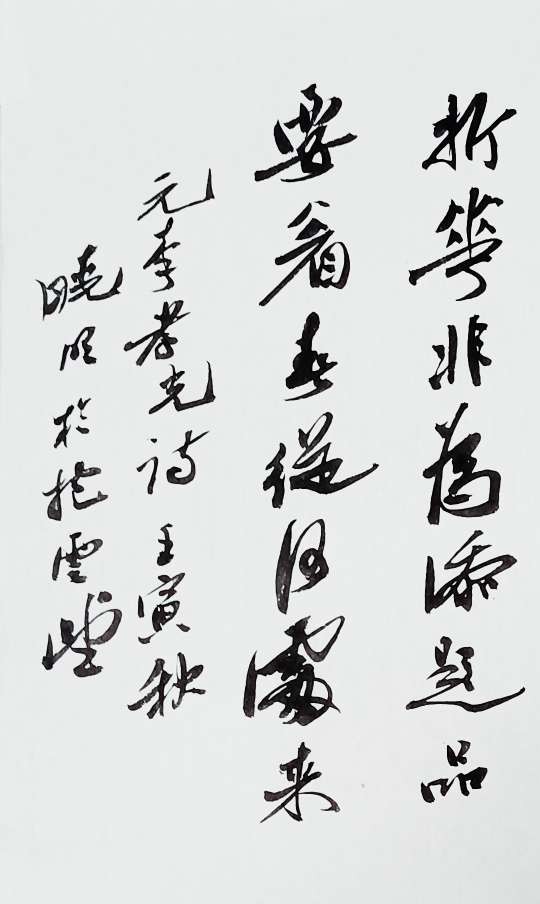 折華非為添題品
要看春從何處来
元李孝光詩 壬寅秋
曉明於抱雲堂